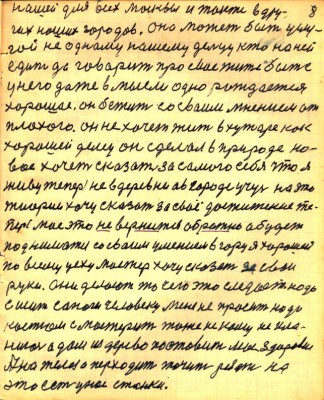 нашей для всех москвы и также в дру- 8
гих наших городов, оно может быть
не одному нашему делу кто на ней
едит да говарит про свое жите быте
у него даже в мысли одно рождается
хорошае, он бежит со своим мнением от
плохого. он не хочет жит в хутаре как
хорошей делу он сделал в природе но-
вое хочет сказат за самого себя что я
живу тепер не в деревне а в городе учус на это
теории хочу сказат за своё достижение те-
пер мое это не вернется обратно а будет
подниматся со своим умением в гору я хорошей
по всему цеху мастер хочу сказат за свои
руки. Они делают то чего это следоват надо
сшит сапоги человеку мене не просит надо
костюм смастерит тоже не кому не кла-
нился а дом из дерева поставит мое здоровие
А на тело переходит точит
это ест цное станки.